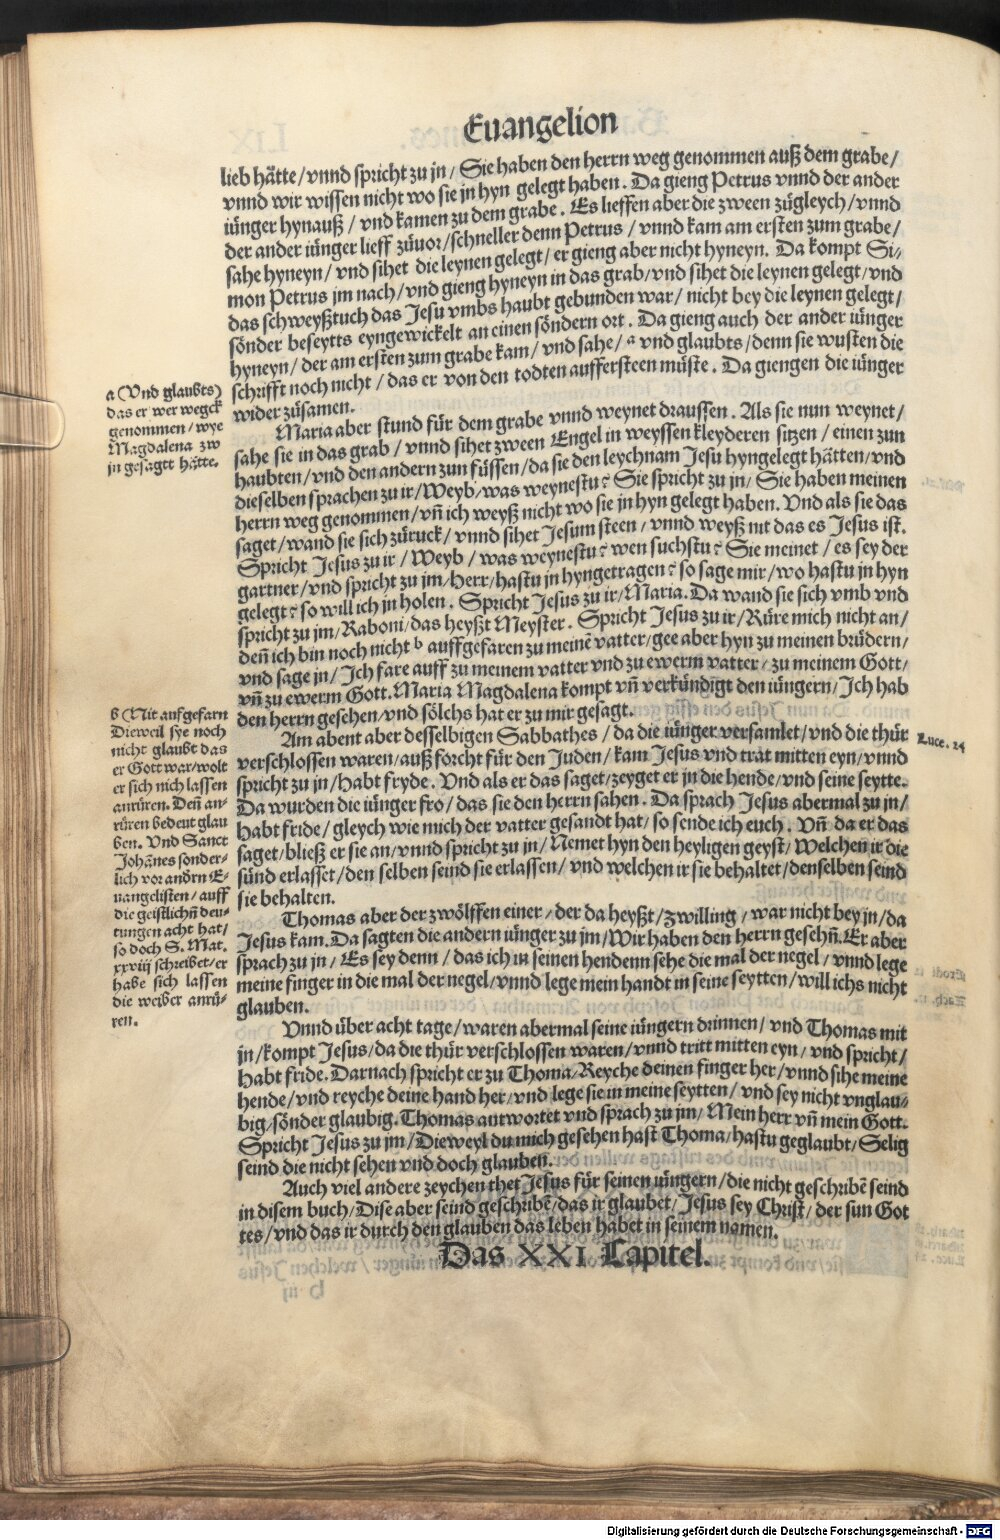 Euangelion
lieb hätte/vnnd spricht zu jn/ Sie haben den herrn weg genommen auß dem grabe/
vnnd wir wissen nicht wo sie jn hyn gelegt haben. Da gieng Petrus vnnd der ander
iünger hynauß / vnd kamen zu dem grabe. Es lieffen aber die zween zůgleych/vnnd
der ander iünger lieff zůuor/schneller denn Petrus / vnnd kam am ersten zum grabe/
sahe hyneyn/ vnd sihet die leynen gelegt/ er gieng aber nicht hyneyn. Da kompt Si-
mon Petrus jm nach/vnd gieng hyneyn in das grab/vnd sihet die leynen gelegt/vnd
das schweyßtuch das Jesu vmbs haubt gebunden war/ nicht bey die leynen gelegt/
sönder beseytts eyngewickelt an einen söndern ort. Da gieng auch der ander iünger
hyneyn/ der am ersten zum grabe kam/ vnd sahe/ a vnd glaubts/denn sie wusten die
schrifft noch nicht/das er von den todten auffersteen müste. Da giengen die iünger
wider zůsamen.
a (Vnd glaubts)
das er wer wegck
genommen/ wye
Magdalena zw
jn gesagtt hätte.
Maria aber stund für dem grabe vnnd weynet draussen. Als sie nun weynet/
sahe sie in das grab/ vnnd sihet zween Engel in weyssen kleyderen sitzen/ einen zun
haubten/vnd den andern zun füssen/da sie den leychnam Jesu hyngelegt hätten/vnd
dieselben sprachen zu ir/Weyb/was weynestu? Sie spricht zu jn/ Sie haben meinen
herrn weg genommen/vñ ich weyß nicht wo sie jn hyn gelegt haben. Vnd als sie das
saget/wand sie sich zůruck/ vnnd sihet Jesum steen/ vnnd weyß nit das es Jesus ist.
Spricht Jesus zu ir/ Weyb/ was weynestu? wen suchstu? Sie meinet / es sey der
gartner/vnd spricht zu jm/Herr/hastu jn hyngetragen? so sage mir/wo hastu jn hyn
gelegt? so will ich jn holen. Spricht Jesus zu ir/Maria. Da wand sie sich vmb vnd
spricht zu jm/Raboni/das heyßt Meyster. Spricht Jesus zu ir/Rüre mich nicht an/
deñ ich bin noch nicht b auffgefaren zu meinē vatter/gee aber hyn zu meinen brüdern/
vnd sage jn/ Jch fare auff zu meinem vatter vnd zu ewerm vatter/ zu meinem Gott/
vñ zu ewerm Gott. Maria Magdalena kompt vñ verkündigt den iüngern/Jch hab
den herrn gesehen/vnd sölchs hat er zu mir gesagt.
b (Nit aufgefarn
Dieweil sye noch
nicht glaubt das
er Gott war/wolt
er sich nich lassen
anrüren. Deñ an-
rüren bedeut glau
ben. Vnd Sanct
Johānes sonder-
lich vor andrn E-
uangelisten/ auff
die geistlichñ deu-
tungen acht hat/
so doch S. Mat.
xxviij schreibet/er
habe sich lassen
die weiber anrü-
ren.
Am abent aber desselbigen Sabbathes / da die iünger versamlet/vnd die thür
verschlossen waren/auß forcht für den Juden/ kam Jesus vnd trat mitten eyn/vnnd
spricht zu jn/Habt fryde. Vnd als er das saget/zeyget er jn die hende/vnd seine seytte.
Da wurden die iünger fro/das sie den herrn sahen. Da sprach Jesus abermal zu jn/
Habt fride/gleych wie mich der vatter gesandt hat/so sende ich euch. Vñ da er das
saget/bließ er sie an/vnnd spricht zu jn/Nemet hyn den heyligen geyst/Welchen ir die
sünd erlasset/den selben seind sie erlassen/ vnd welchen ir sie behaltet/denselben seind
sie behalten.
Luce. 24
Thomas aber der zwölffen einer/der da heyßt/zwilling/war nicht bey jn/da
Jesus kam. Da sagten die andern iünger zu jm/Wir haben den herrn gesehñ. Er aber
sprach zu jn/ Es sey denn/das ich in seinen hendenn sehe die mal der negel/vnnd lege
meine finger in die mal der negel/vnnd lege mein handt in seine seytten/will ichs nicht
glauben.
Vnnd über acht tage/waren abermal seine iüngern drinnen/ vnd Thomas mit
jn/kompt Jesus/da die thür verschlossen waren/vnnd tritt mitten eyn/ vnd spricht/
Habt fride. Darnach spricht er zu Thoma/Reyche deinen finger her/vnnd sihe meine
hende/vnd reyche deine hand her/vnd lege sie in meine seytten/vnd sey nicht vnglau-
big/sönder glaubig. Thomas antwortet vnd sprach zu jm/Mein herr vñ mein Gott.
Spricht Jesus zu jm/Dieweyl du mich gesehen hast Thoma/hastu geglaubt/Selig
seind die nicht sehen vnd doch glauben.
Auch viel andere zeychen thet Jesus für seinen iüngern/die nicht geschribē seind
in disem buch/Dise aber seind geschribē/das ir glaubet/Jesus sey Christ/ der sun Got
tes/vnd das ir durch den glauben das leben habet in seinem namen.
Das XXI Capitel.
Digitalisierung gefördert durch die Deutsche Forschungsgemeinschaft - DFG